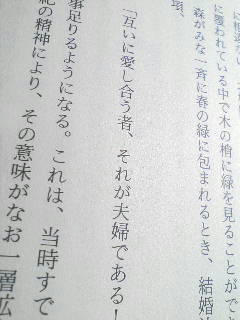 に覆われている中で木の梢に緑を見ることがで
森がみな一斉に春の緑に包まれるとき、結婚
頃、
「互いに愛し合う者、それが夫婦である！
事足りるようになる。これは、当時すで
の精神により、その意味がなお一層広